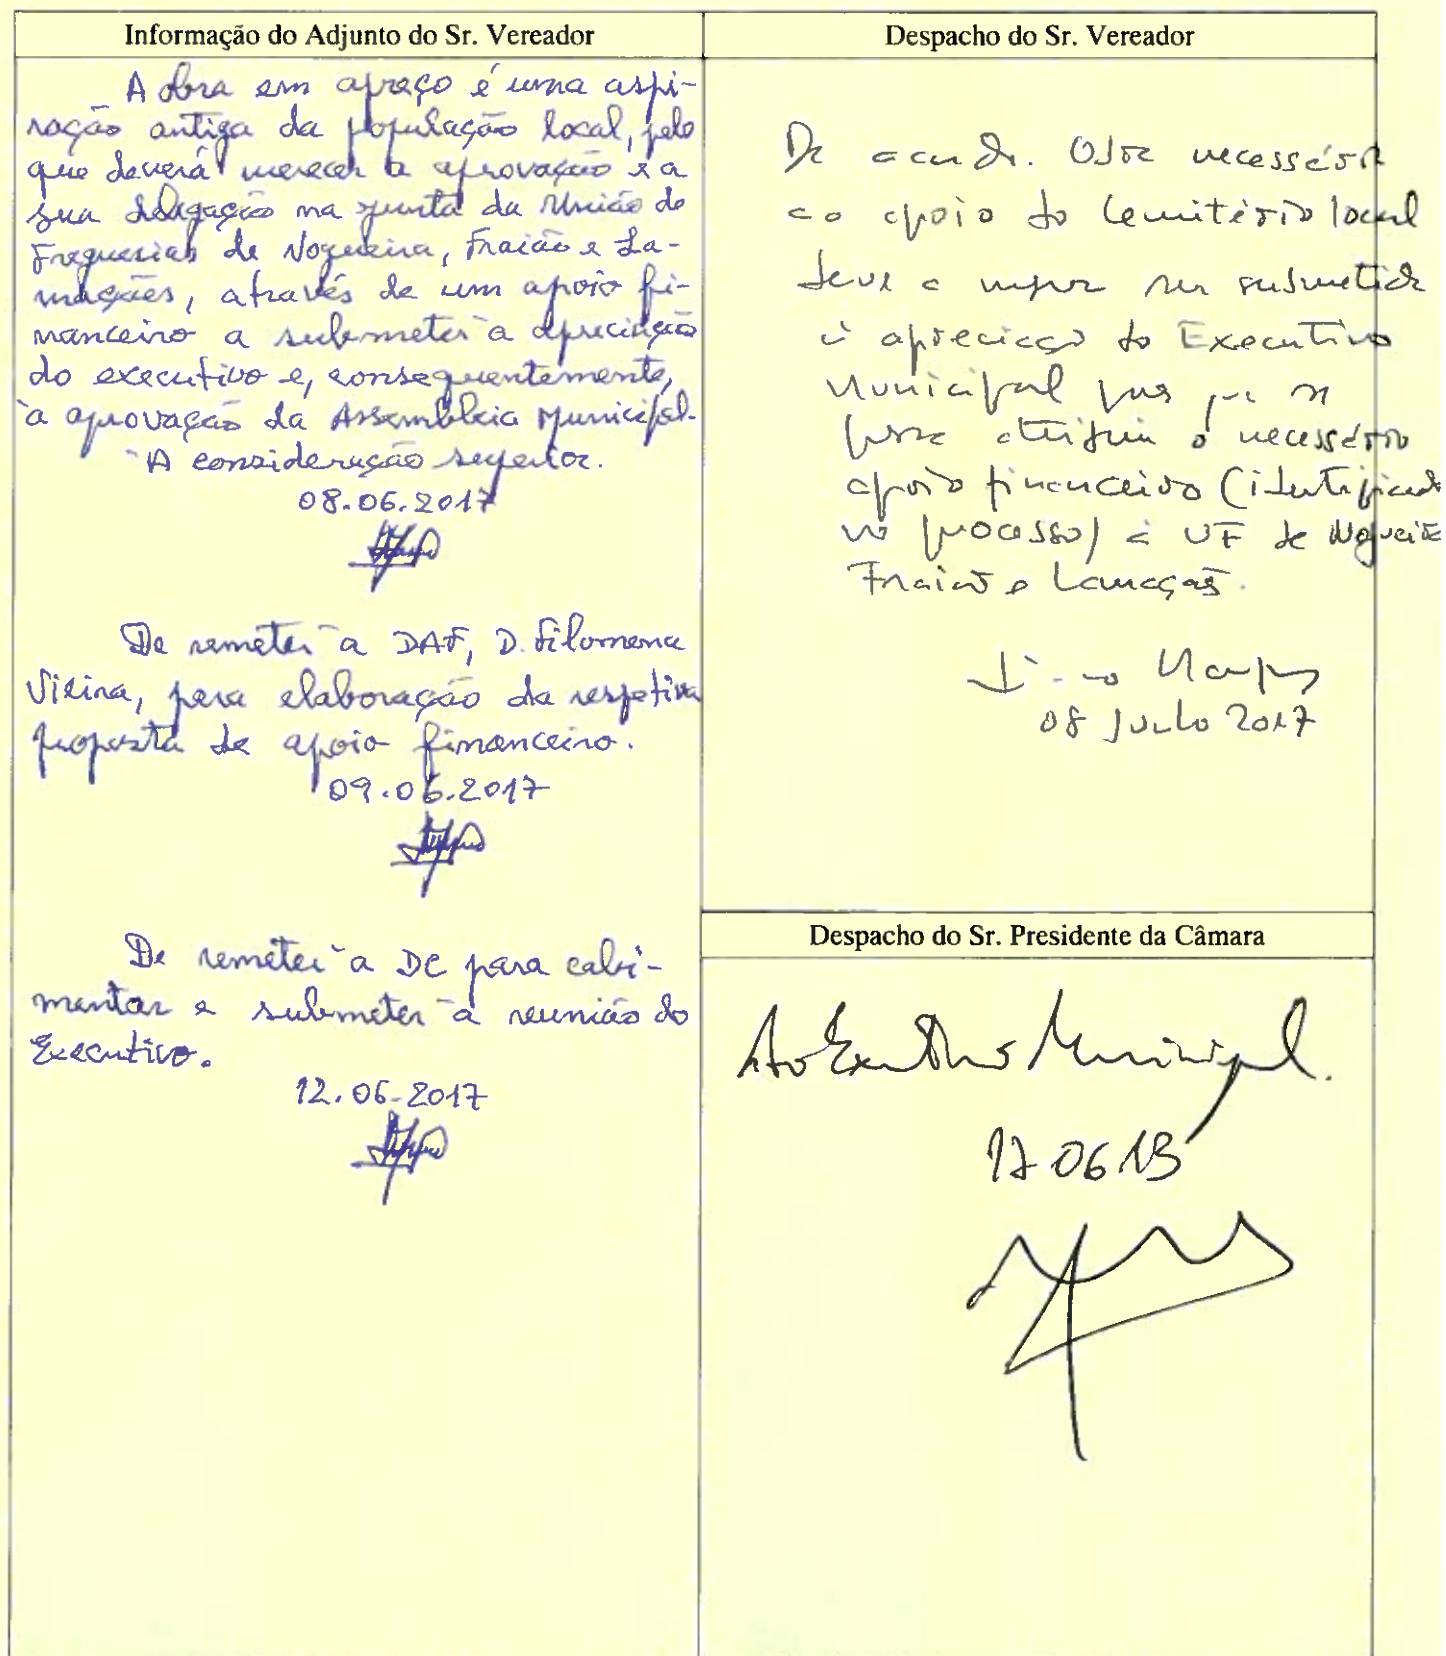 Informação do Adjunto do Sr. Vereador
A obra em apreço é uma aspi-
ração antiga da população local, pelo
que deverá merecer a aprovação e a
sua delegação na Junta da União de
Freguesias de Nogueira, Fraião e La-
maçães, através de um apoio fi-
nanceiro a submeter à apreciação
do executivo e, consequentemente,
à aprovação da Assembleia Municipal.
À consideração superior.
08.06.2017
De remeter à DAF, D. Filomena
Vieira, para elaboração da respetiva
proposta de apoio financeiro.
09.06.2017
De remeter à DC para cabi-
mentar e submeter à reunião do
Executivo.
12.06.2017
Despacho do Sr. Vereador
De acordo. Obra necessária
ao apoio do Cemitério local
deve a ser submetida
à apreciação do Executivo
Municipal para que se
possa atribuir o necessário
apoio financeiro (identificado
no processo) à UF de Nogueira
Fraião e Lamaçães.
08 Junho 2017
Despacho do Sr. Presidente da Câmara
Ao Executivo Municipal.
17 06 13